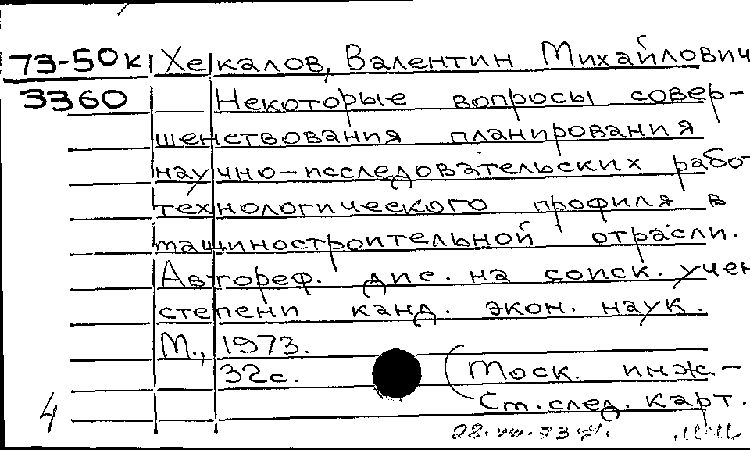 73-50к Хекалов, Валентин Михайлович
3360 Некоторые вопросы совер-
шенствования планирования
научно-исследовательских рабо
технологического профиля в
машиностроительной отрасли.
Автореф. дис. на соиск. учен
степени канд. экон. наук.
М., 1973.
32с. (Моск. инж.-
4 См. след. карт.